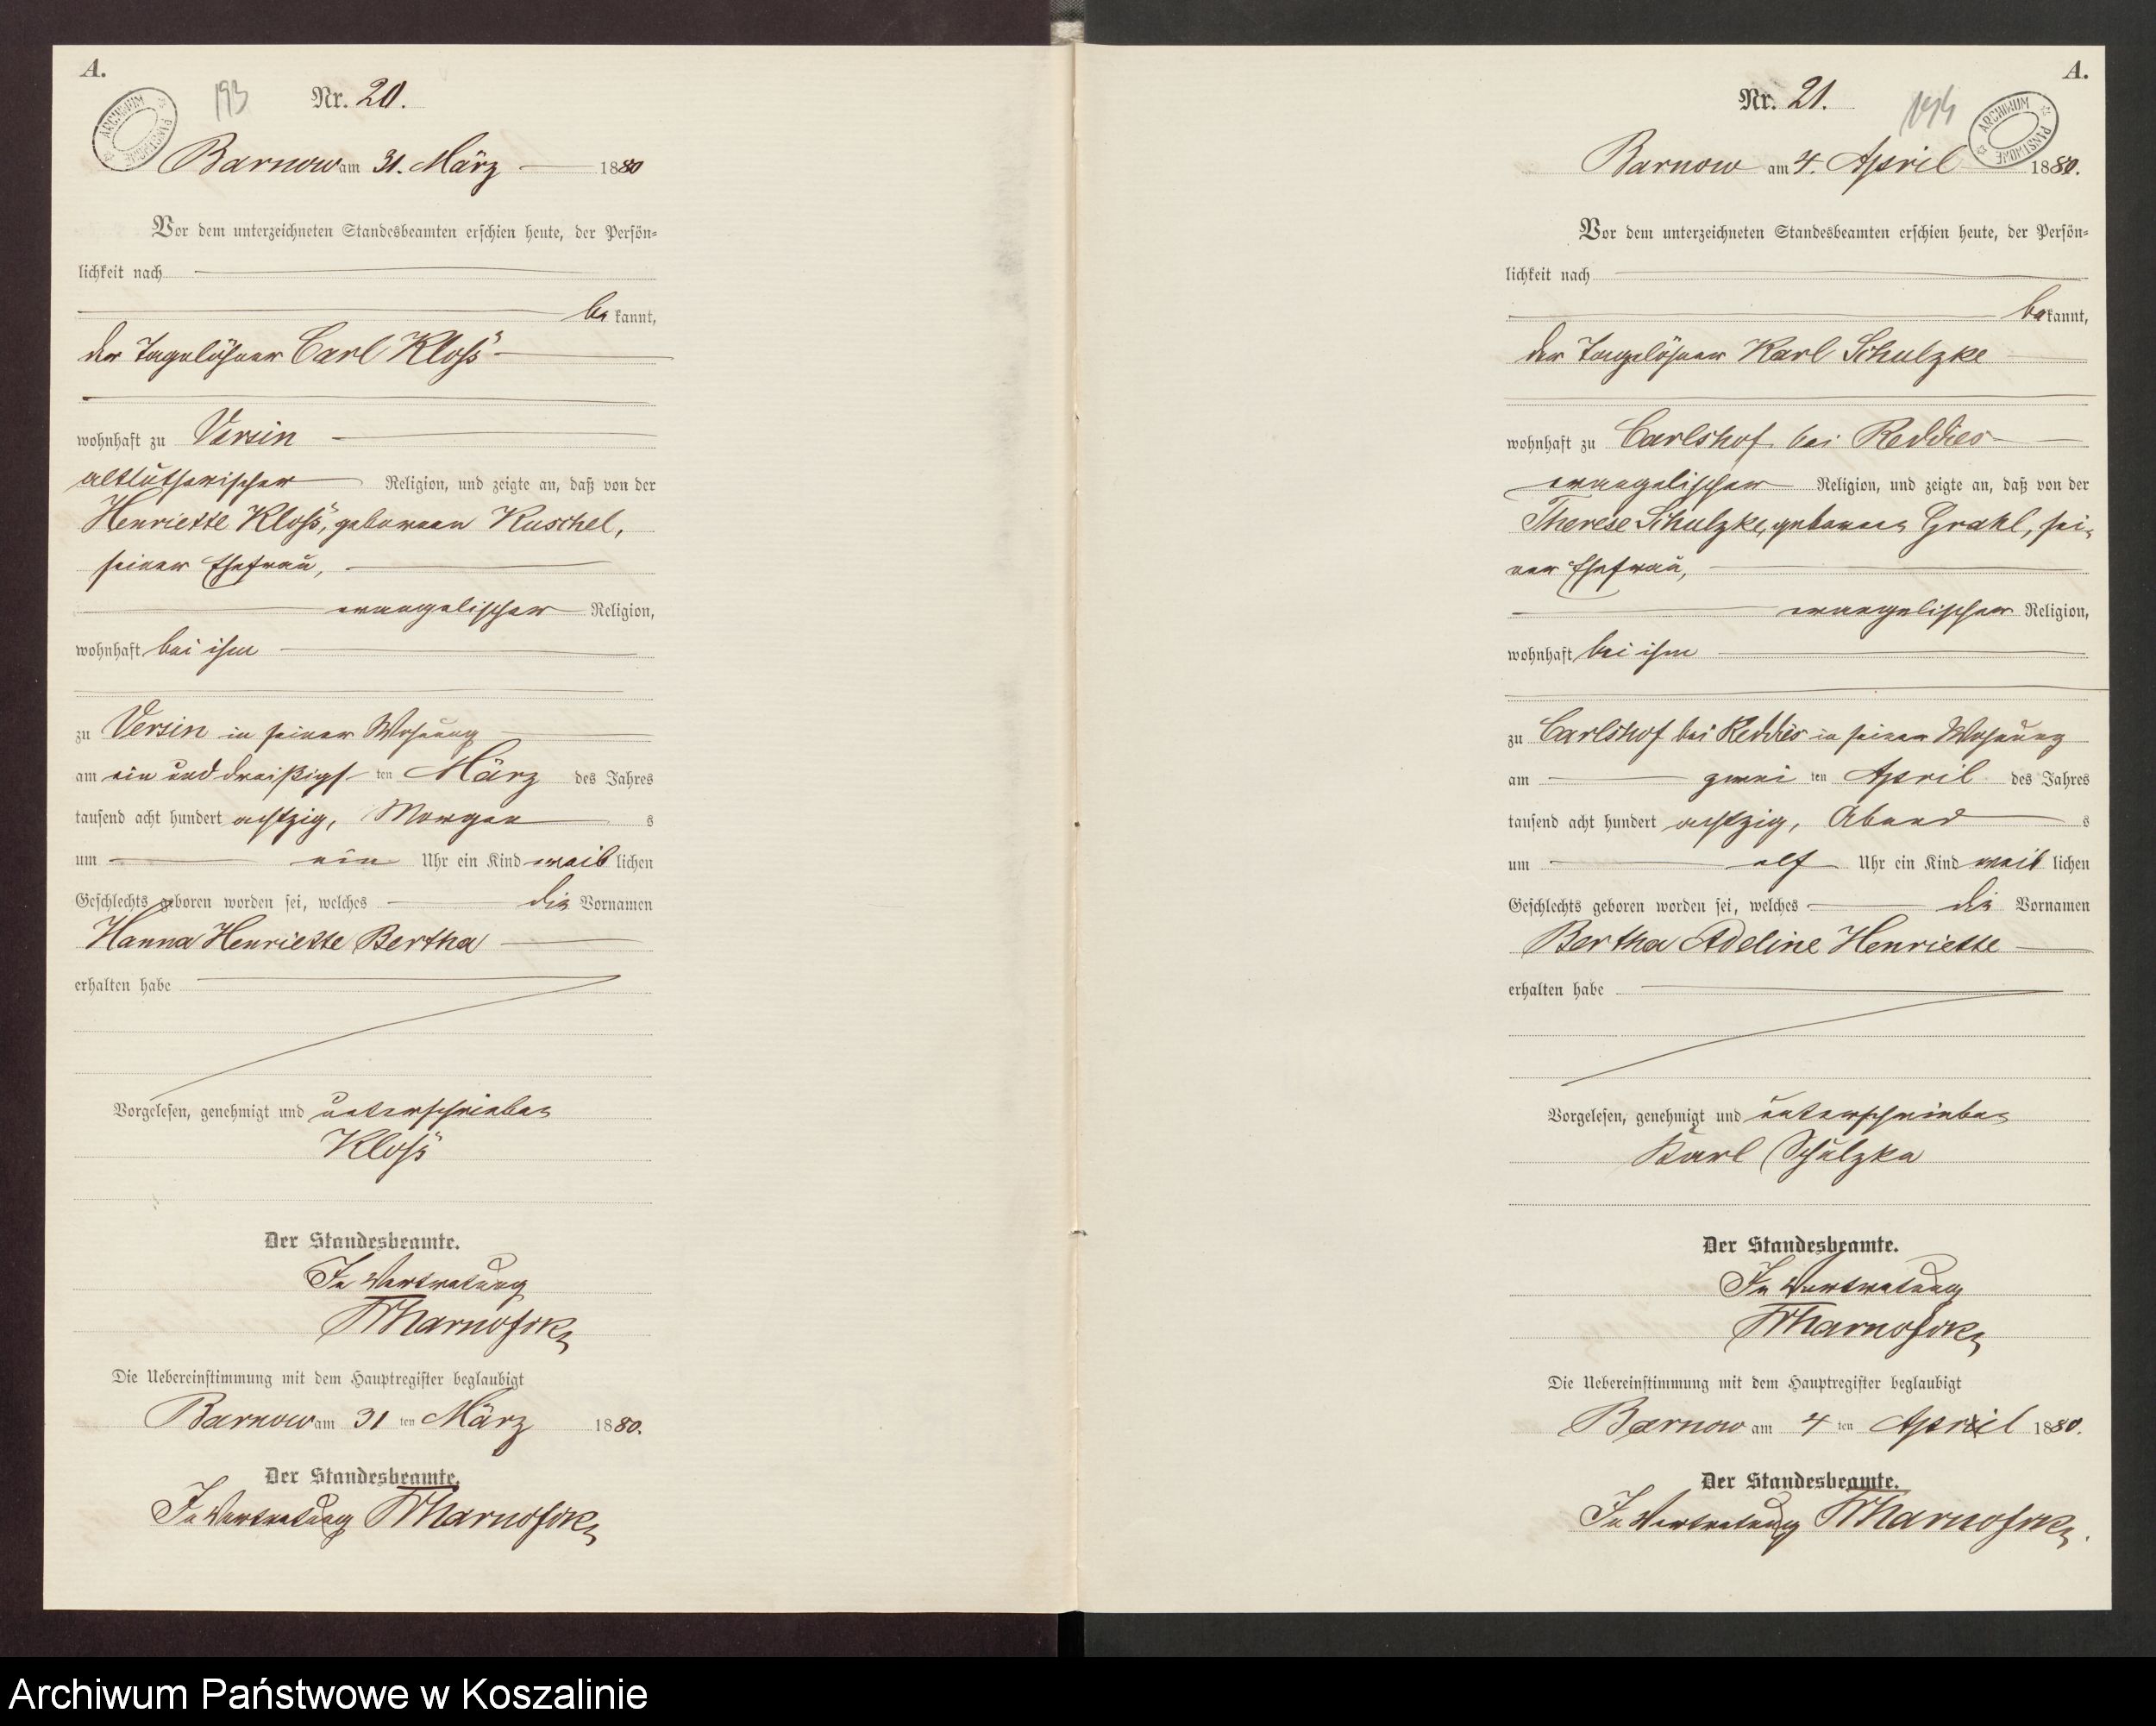 A.
193
Nr. 20.
ARCHIWUM PAŃSTWOWE
Barnow am 31. März 1880
Vor dem unterzeichneten Standesbeamten erschien heute, der Persön=
lichkeit nach
be kannt,
der Tagelöhner Carl Kloß
wohnhaft zu Versin
altlutherischer Religion, und zeigte an, daß von der
Henriette Kloß, geborenen Kuschel,
seiner Ehefrau,
evangelischer Religion,
wohnhaft bei ihm
zu Versin in seiner Wohnung
am ein und dreißigst ten März des Jahres
tausend acht hundert achtzig, Morgen s
um ein Uhr ein Kind weib lichen
Geschlechts geboren worden sei, welches die Vornamen
Hanna Henriette Bertha
erhalten habe
Vorgelesen, genehmigt und unterschrieben
Kloß
Der Standesbeamte.
In Vertretung
Die Uebereinstimmung mit dem Hauptregister beglaubigt
Barnow am 31 ten März 1880.
Der Standesbeamte.
In Vertretung
A.
Nr. 21.
194
ARCHIWUM PAŃSTWOWE
Barnow am 4. April 1880.
Vor dem unterzeichneten Standesbeamten erschien heute, der Persön=
lichkeit nach
be kannt,
der Tagelöhner Karl Schulzke
wohnhaft zu Carlshof bei Reddies
evangelischer Religion, und zeigte an, daß von der
Therese Schulzke, geborenen Grahl, sei-
ner Ehefrau,
evangelischer Religion,
wohnhaft bei ihm
zu Carlshof bei Reddies in seiner Wohnung
am zwei ten April des Jahres
tausend acht hundert achtzig, Abend s
um elf Uhr ein Kind weib lichen
Geschlechts geboren worden sei, welches die Vornamen
Bertha Adeline Henriette
erhalten habe
Vorgelesen, genehmigt und unterschrieben
Karl Schulzke
Der Standesbeamte.
In Vertretung
Die Uebereinstimmung mit dem Hauptregister beglaubigt
Barnow am 4 ten April 1880.
Der Standesbeamte.
In Vertretung
Archiwum Państwowe w Koszalinie